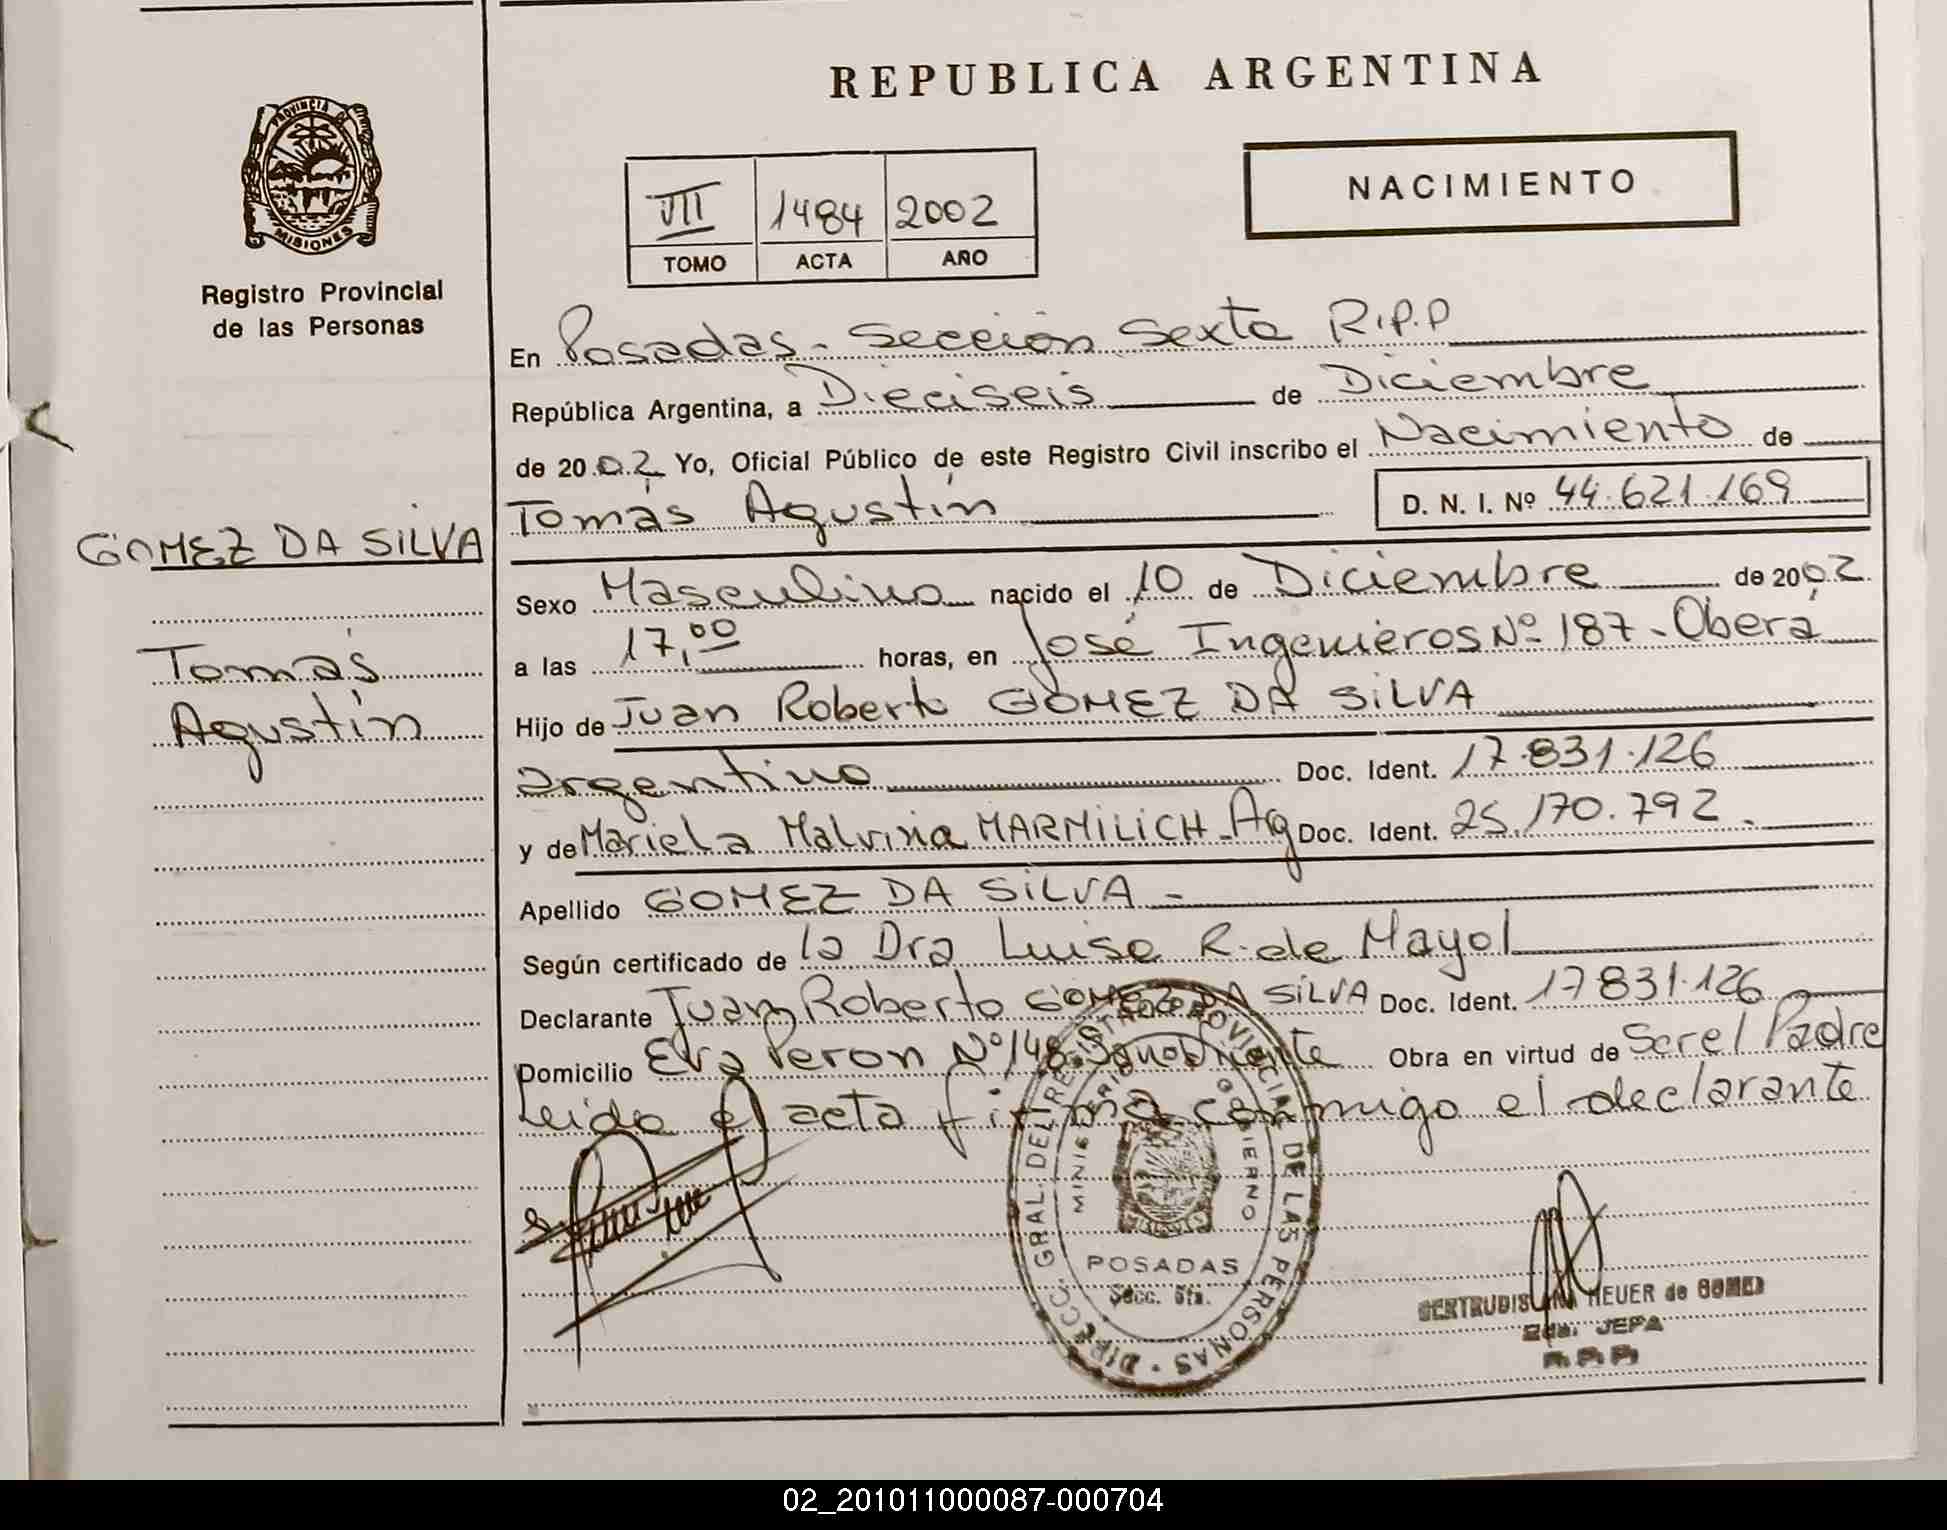 REPUBLICA ARGENTINA
PROVINCIA DE
MISIONES
Registro Provincial
de las Personas
VII 1484 2002
TOMO ACTA AÑO
NACIMIENTO
En Posadas - Sección Sexta R.P.P
República Argentina, a Dieciseis de Diciembre
de 2002 Yo, Oficial Público de este Registro Civil inscribo el Nacimiento de
Tomás Agustín D. N. I. Nº 44.621.169
GOMEZ DA SILVA
Tomás
Agustín
Sexo Masculino nacido el 10 de Diciembre de 2002.
a las 17,00 horas, en José Ingenieros Nº 187 - Oberá
Hijo de Juan Roberto GOMEZ DA SILVA
argentino Doc. Ident. 17.831.126
y de Mariela Malvina MARMILICH - Ag Doc. Ident. 25.170.792.
Apellido GOMEZ DA SILVA -
Según certificado de la Dra Luisa R. de Mayol
Declarante Juan Roberto GOMEZ DA SILVA Doc. Ident. 17831.126
Domicilio Eva Peron Nº 148 Obra en virtud de Ser el Padre
Leida el acta firma conmigo el declarante
DIRECC. GRAL. DEL REGISTRO PROVINCIAL DE LAS PERSONAS
MINISTERIO GOBIERNO
POSADAS
Secc. 6ta.
GERTRUDIS MEUER de GOMEZ
JEFA
02_201011000087-000704